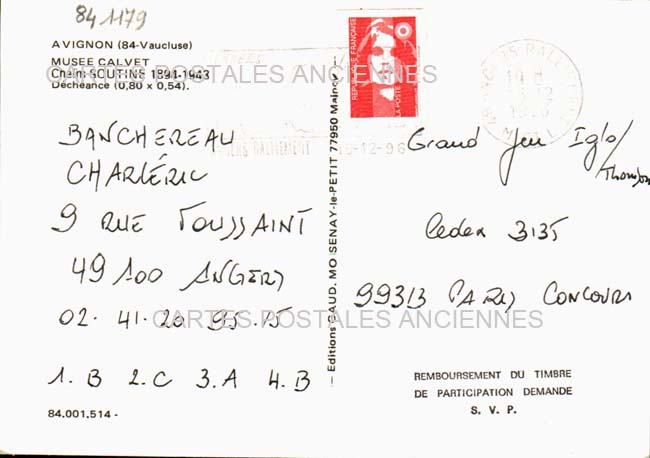 84 1179
AVIGNON (84-Vaucluse)
MUSEE CALVET
Chaïm SOUTINE 1894-1943
Déchéance (0,80 x 0,54).
CARTES POSTALES ANCIENNES
BANCHEREAU
CHARLÉRIC
9 RUE TOUSSAINT
49 100 ANGERS
02. 41. 20 95.15
CARTES POSTALES ANCIENNES
1. B 2. C 3. A 4. B
84.001.514 -
— Editions GAUD. MOISENAY-le-PETIT 77950 Maincy —
REPUBLIQUE FRANÇAISE
LA POSTE
RALLIEMENT
16-12-96
Grand Jeu Iglo/
Thomson
Cedex 3135
99313 PARIS CONCOURS
REMBOURSEMENT DU TIMBRE
DE PARTICIPATION DEMANDE
S. V. P.